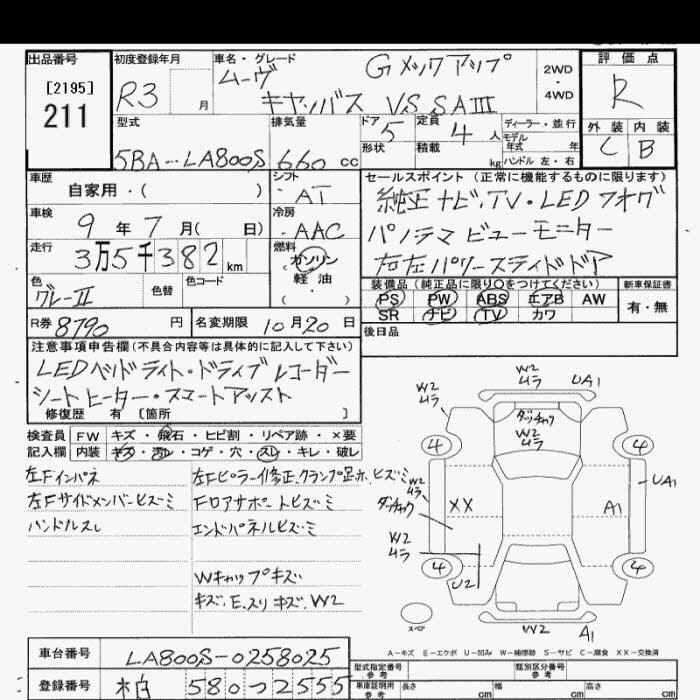 出品番号 初度登録年月 車名・グレード 評価点
[2195] 211
R3 月
ムーヴ Gメックアップ
キャンバス VS SAⅢ
2WD・4WD
R
型式 排気量 ドア 5 定員 4人 ディーラー・並行
外装 内装
5BA-LA800S 660cc
形状 積載 kg モデル年式 年 ハンドル 左・右
C B
車歴 シフト セールスポイント(正常に機能するものに限ります)
自家用・( ) AT
純正ナビ,TV・LEDフォグ
車検 9年7月( 日) 冷房 AAC
パノラマビューモニター
走行 3万5千382km 燃料 ガソリン 軽油・( )
右左パワースライドドア
色 グレーⅡ 色替 色コード
装備品(純正品に限り○をつけてください) 新車保証書
PS PW ABS エアB AW 有・無
SR ナビ TV カワ
R券 8790円 名変期限 10月20日
後日品
注意事項申告欄(不具合内容等は具体的に記入して下さい)
LEDヘッドライト・ドライブレコーダー
シートヒーター・スマートアシスト
修復歴 有 [箇所 ]
検査員 FW キズ・飛石・ヒビ割・リペア跡・×要
記入欄 内装 キズ・汚レ・コゲ・穴・スレ・キレ・破レ
左Fインパネ 左Fピラー修正,クランプ足ホ,ヒズミ
左Fサイドメンバーヒズミ Fロアサポートヒズミ
ハンドルスレ エンドパネルヒズミ
Wキャップキズ
キズ,E,スリキズ,W2
W2 ムラ UA1
W2 ムラ
ダッチャク
W2 ムラ
4 4
W2 ムラ
ダッチャク
XX
A1
UA1
W2 ムラ
4 4
U2
スペア
W2 A1
A-キズ E-エクボ U-凹み W-補修跡 S-サビ C-腐食 XX-交換済
車台番号 LA800S-0258025
型式指定番号 参考 類別区分番号 参考
登録番号 柏 580つ2555
車庫証明用 参考 長さ cm 幅 cm 高さ cm